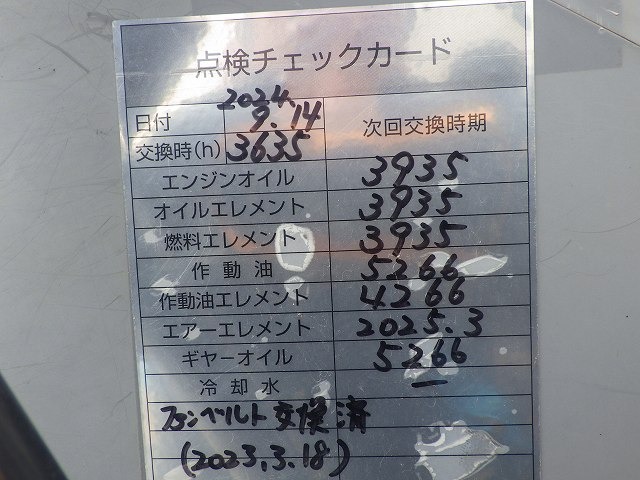 点検チェックカード
日付 2024. 9.14 次回交換時期
交換時(h) 3635
エンジンオイル 3935
オイルエレメント 3935
燃料エレメント 3935
作動油 5266
作動油エレメント 4266
エアーエレメント 2025.3
ギヤーオイル 5266
冷却水 ー
ファンベルト交換済
(2023.3.18)